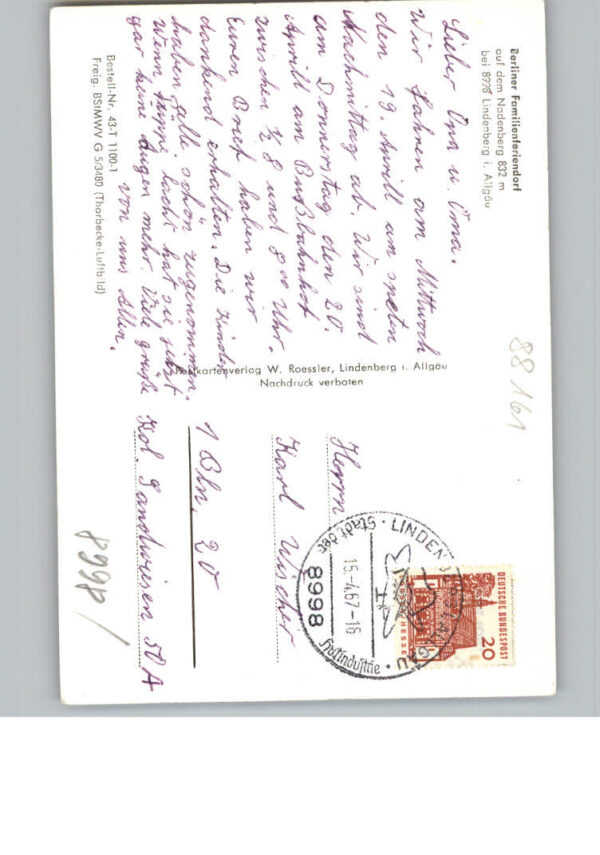 Berliner Familienferiendorf
auf dem Nadenberg 832 m
bei 8998 Lindenberg i. Allgäu
Lieber Opa u. Oma.
Wir fahren am Mittwoch
den 19. April am späten
Nachmittag ab. Wir sind
am Donnerstag den 20.
April am Busbahnhof
zwischen ½ 8 und 8⁰⁰ Uhr.
Euren Brief haben wir
dankend erhalten. Die Kinder
haben alle schön zugenommen.
Wenn Puppe lacht hat sie jetzt
gar keine Augen mehr. Viele Grüße
von uns Allen.
Bestell-Nr. 43-T 1100-1
Freig. BStMWV G 5/3480 (Thorbecke-Luftbild)
Postkartenverlag W. Roessler, Lindenberg i. Allgäu
Nachdruck verboten
88 161
8998/
DEUTSCHE BUNDESPOST
20
HESSEN
LINDENBERG ALLGÄU
Stadt der
Hutindustrie
15.-4.67-16
8998
Herrn
Karl Uscher
1 Bln. 20
Kol. Sandwiesen 50 A